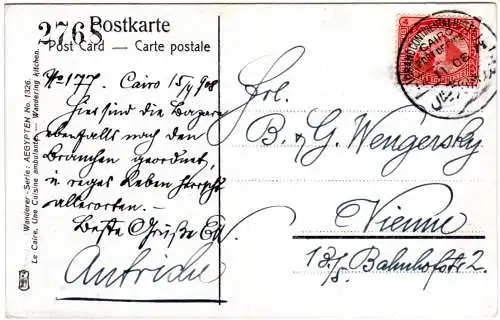 2768
Postkarte
Post Card — Carte postale
Wanderer-Serie: AEGYPTEN No. 1326.
Le Caire, Une Cuisine ambulante. — Wandering kitchen.
No 177. Cairo 15/4 908
Hier sind die Bazare
ebenfalls nach den
Branchen geordnet,
in reges Leben herrscht
allerorten. —
Beste Grüße
Autriche
B. & G. Wengersky
Vienne
13/5. Bahnhofstr 2.
CAIRO